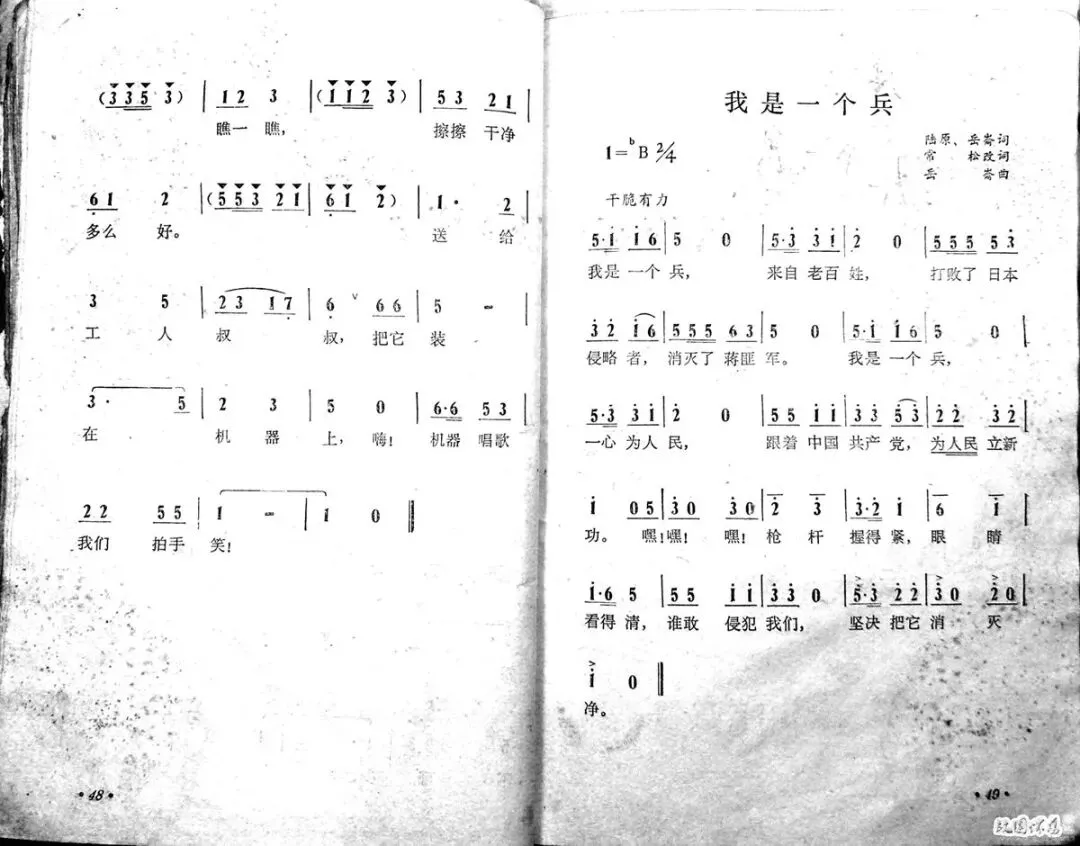 (3 3 5 3) | 1 2 3 | (1 1 2 3) | 5 3 2 1 |
瞧一 瞧， 擦擦 干净
6 1 2 | (5 5 3 2 1 | 6 1 2) | 1· 2 |
多么 好。 送 给
3 5 | 2 3 1 7 | 6 ∨ 6 6 | 5 - |
工 人 叔 叔，把它 装
3· 5 | 2 3 | 5 0 | 6·6 5 3 |
在 机 器 上，嗨！ 机器 唱歌
2 2 5 5 | 1 - | 1 0 ‖
我们 拍手 笑！
·48·
我是一个兵
1=♭B 2/4
陆原、岳崙词
常 松改词
岳 崙曲
干脆有力
5·i i 6 | 5 0 | 5·3 3 i | 2 0 | 5 5 5 5 3 |
我是 一个 兵， 来自 老百 姓， 打败了 日本
3 2 i 6 | 5 5 5 6 3 | 5 0 | 5·i i 6 | 5 0 |
侵略 者，消灭了 蒋匪 军。 我是 一个 兵，
5·3 3 i | 2 0 | 5 5 i i | 3 3 5 3 | 2 2 3 2 |
一心 为人 民， 跟着 中国 共产 党，为人民 立新
i 0 5 | 3 0 3 0 | 2 3 | 3·2 i | 6 i |
功。 嘿！嘿！ 嘿！枪 杆 握得 紧，眼 睛
i·6 5 | 5 5 i i | 3 3 0 | 5·3 2 2 | 3 0 2 0 |
看得 清，谁敢 侵犯 我们， 坚决 把它 消 灭
i 0 ‖
净。
·49·